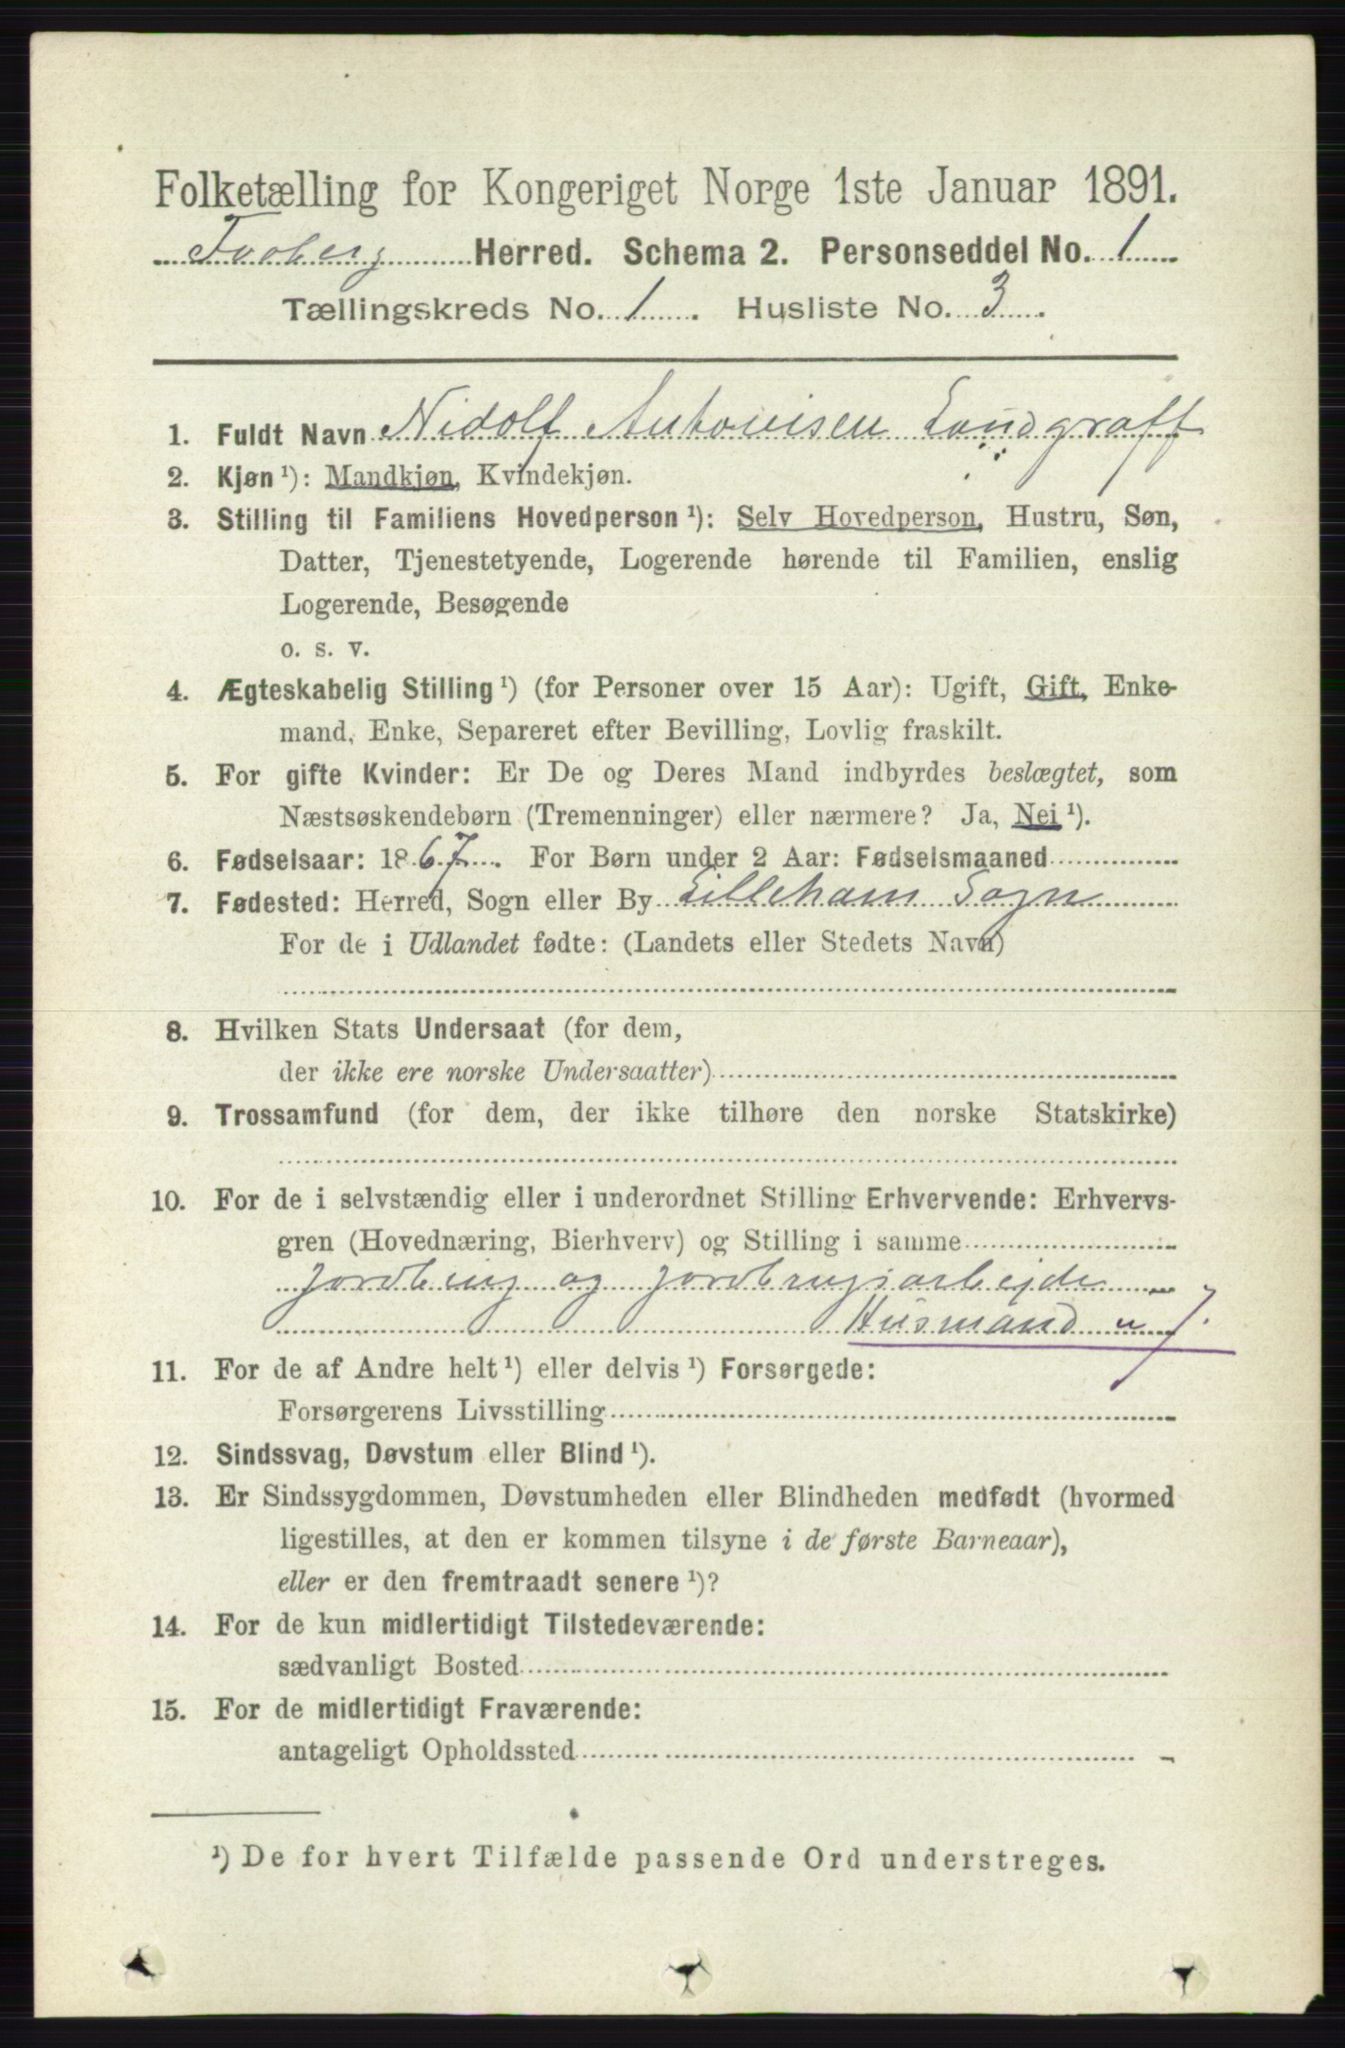 Folketælling for Kongeriget Norge 1ste Januar 1891.
Faaberg Herred. Schema 2. Personseddel No. 1
Tællingskreds No. 1. Husliste No. 3.
1. Fuldt Navn Nidolf Antonisen Landgraff
2. Kjøn ¹): Mandkjøn, Kvindekjøn.
3. Stilling til Familiens Hovedperson ¹): Selv Hovedperson, Hustru, Søn,
Datter, Tjenestetyende, Logerende hørende til Familien, enslig
Logerende, Besøgende
o. s. v.
4. Ægteskabelig Stilling ¹) (for Personer over 15 Aar): Ugift, Gift, Enke-
mand, Enke, Separeret efter Bevilling, Lovlig fraskilt.
5. For gifte Kvinder: Er De og Deres Mand indbyrdes beslægtet, som
Næstsøskendebørn (Tremenninger) eller nærmere? Ja, Nei ¹).
6. Fødselsaar: 1867. For Børn under 2 Aar: Fødselsmaaned
7. Fødested: Herred, Sogn eller By Lilleham Sogn
For de i Udlandet fødte: (Landets eller Stedets Navn)
8. Hvilken Stats Undersaat (for dem,
der ikke ere norske Undersaatter)
9. Trossamfund (for dem, der ikke tilhøre den norske Statskirke)
10. For de i selvstændig eller i underordnet Stilling Erhvervende: Erhvervs-
gren (Hovednæring, Bierhverv) og Stilling i samme
Jordbrug og Jordbrugsarbejde
Husmand m J.
11. For de af Andre helt ¹) eller delvis ¹) Forsørgede:
Forsørgerens Livsstilling
12. Sindssvag, Døvstum eller Blind ¹).
13. Er Sindssygdommen, Døvstumheden eller Blindheden medfødt (hvormed
ligestilles, at den er kommen tilsyne i de første Barneaar),
eller er den fremtraadt senere ¹)?
14. For de kun midlertidigt Tilstedeværende:
sædvanligt Bosted
15. For de midlertidigt Fraværende:
antageligt Opholdssted
¹) De for hvert Tilfælde passende Ord understreges.